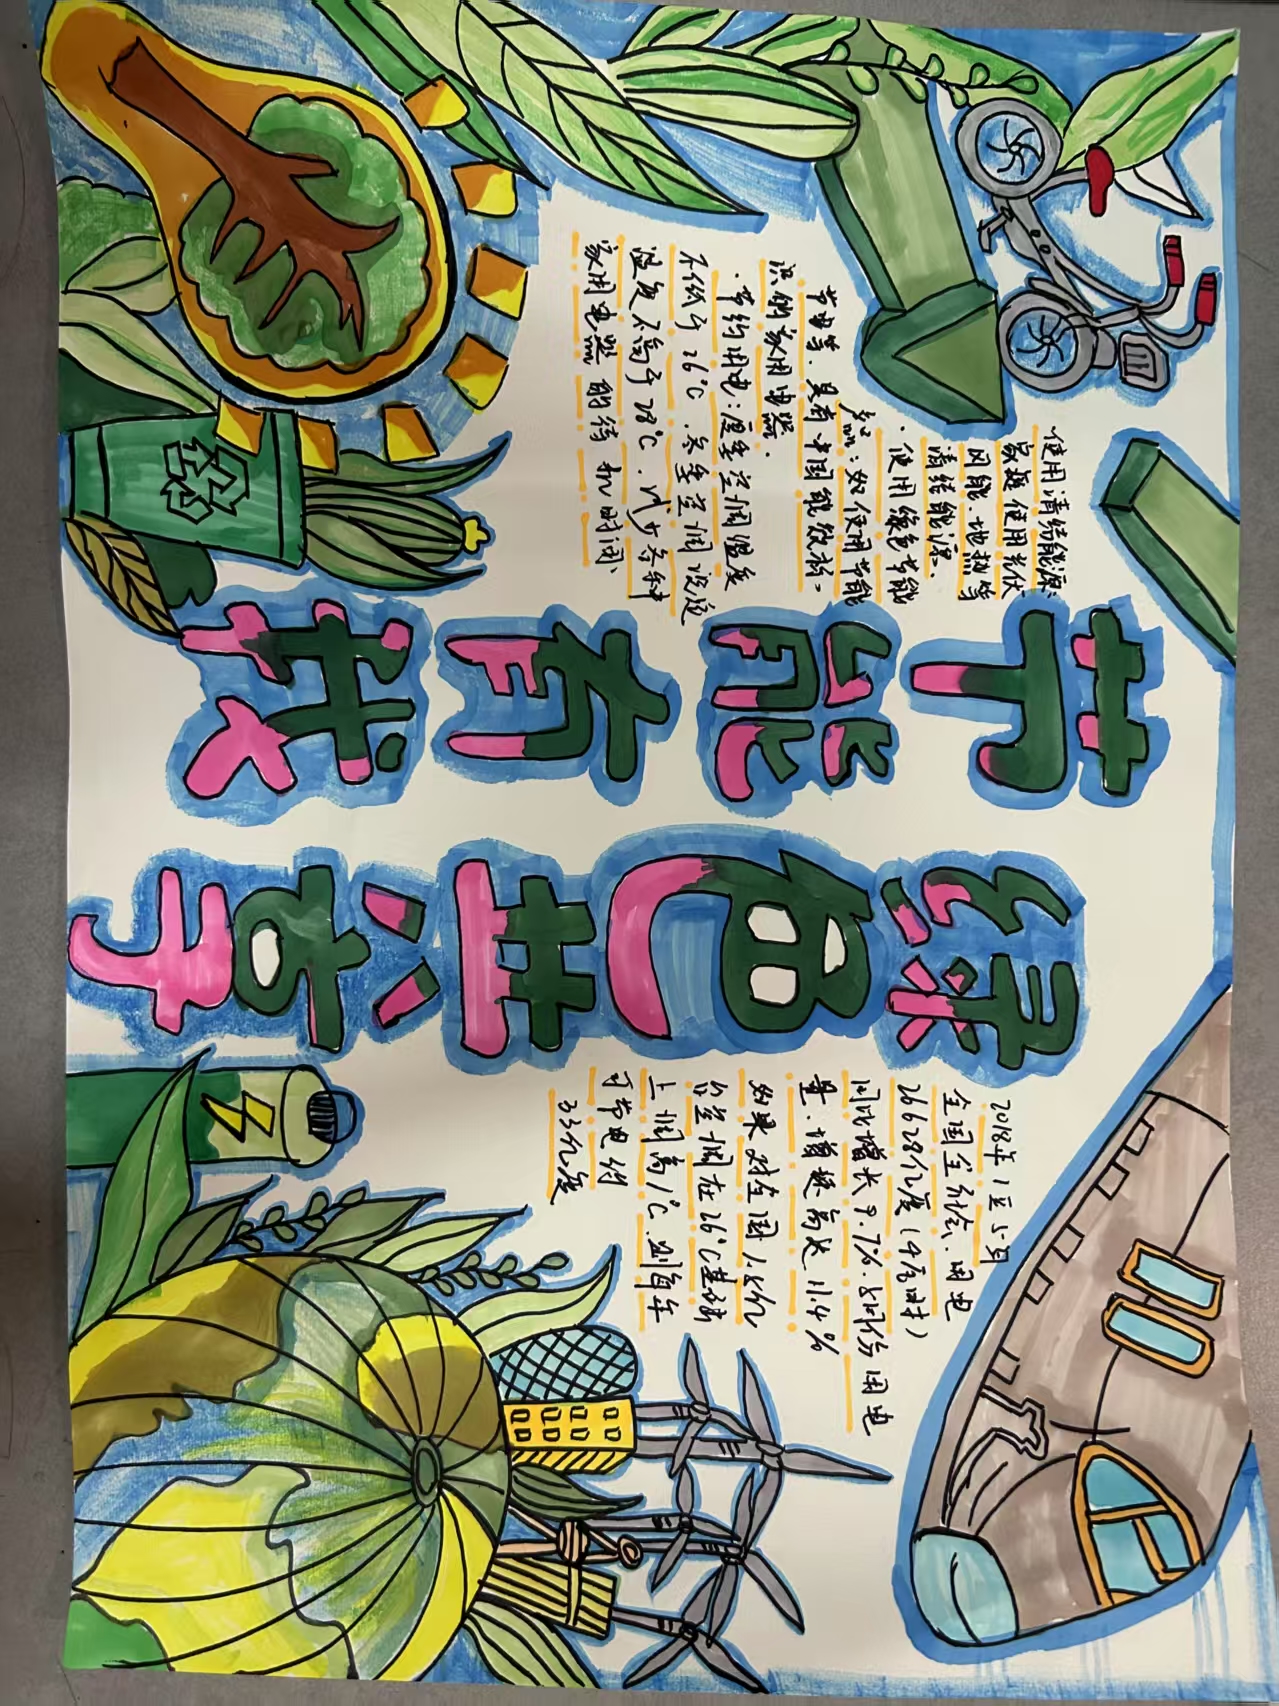 节能有我
绿色共享
使用清结能源:
家庭使用光伏
风能、地热等
清结能源、
·使用绿色节能
产品:如使用节能
节电等、具有中国能效标
识的家用电器、
·节约用电:夏季空调温度
不低于26℃、冬季空调设定
温度不高于28℃、减少各种
家用电器的待机时间、
2018年1至5月
全国全社会、用电
26628亿度(千瓦时)
同比增长9.7%、5月份用电
量、增速高达11.4%
如果对空调1.8亿
台空调在26℃基础
上调高1℃、则每年
可节电约
33亿度